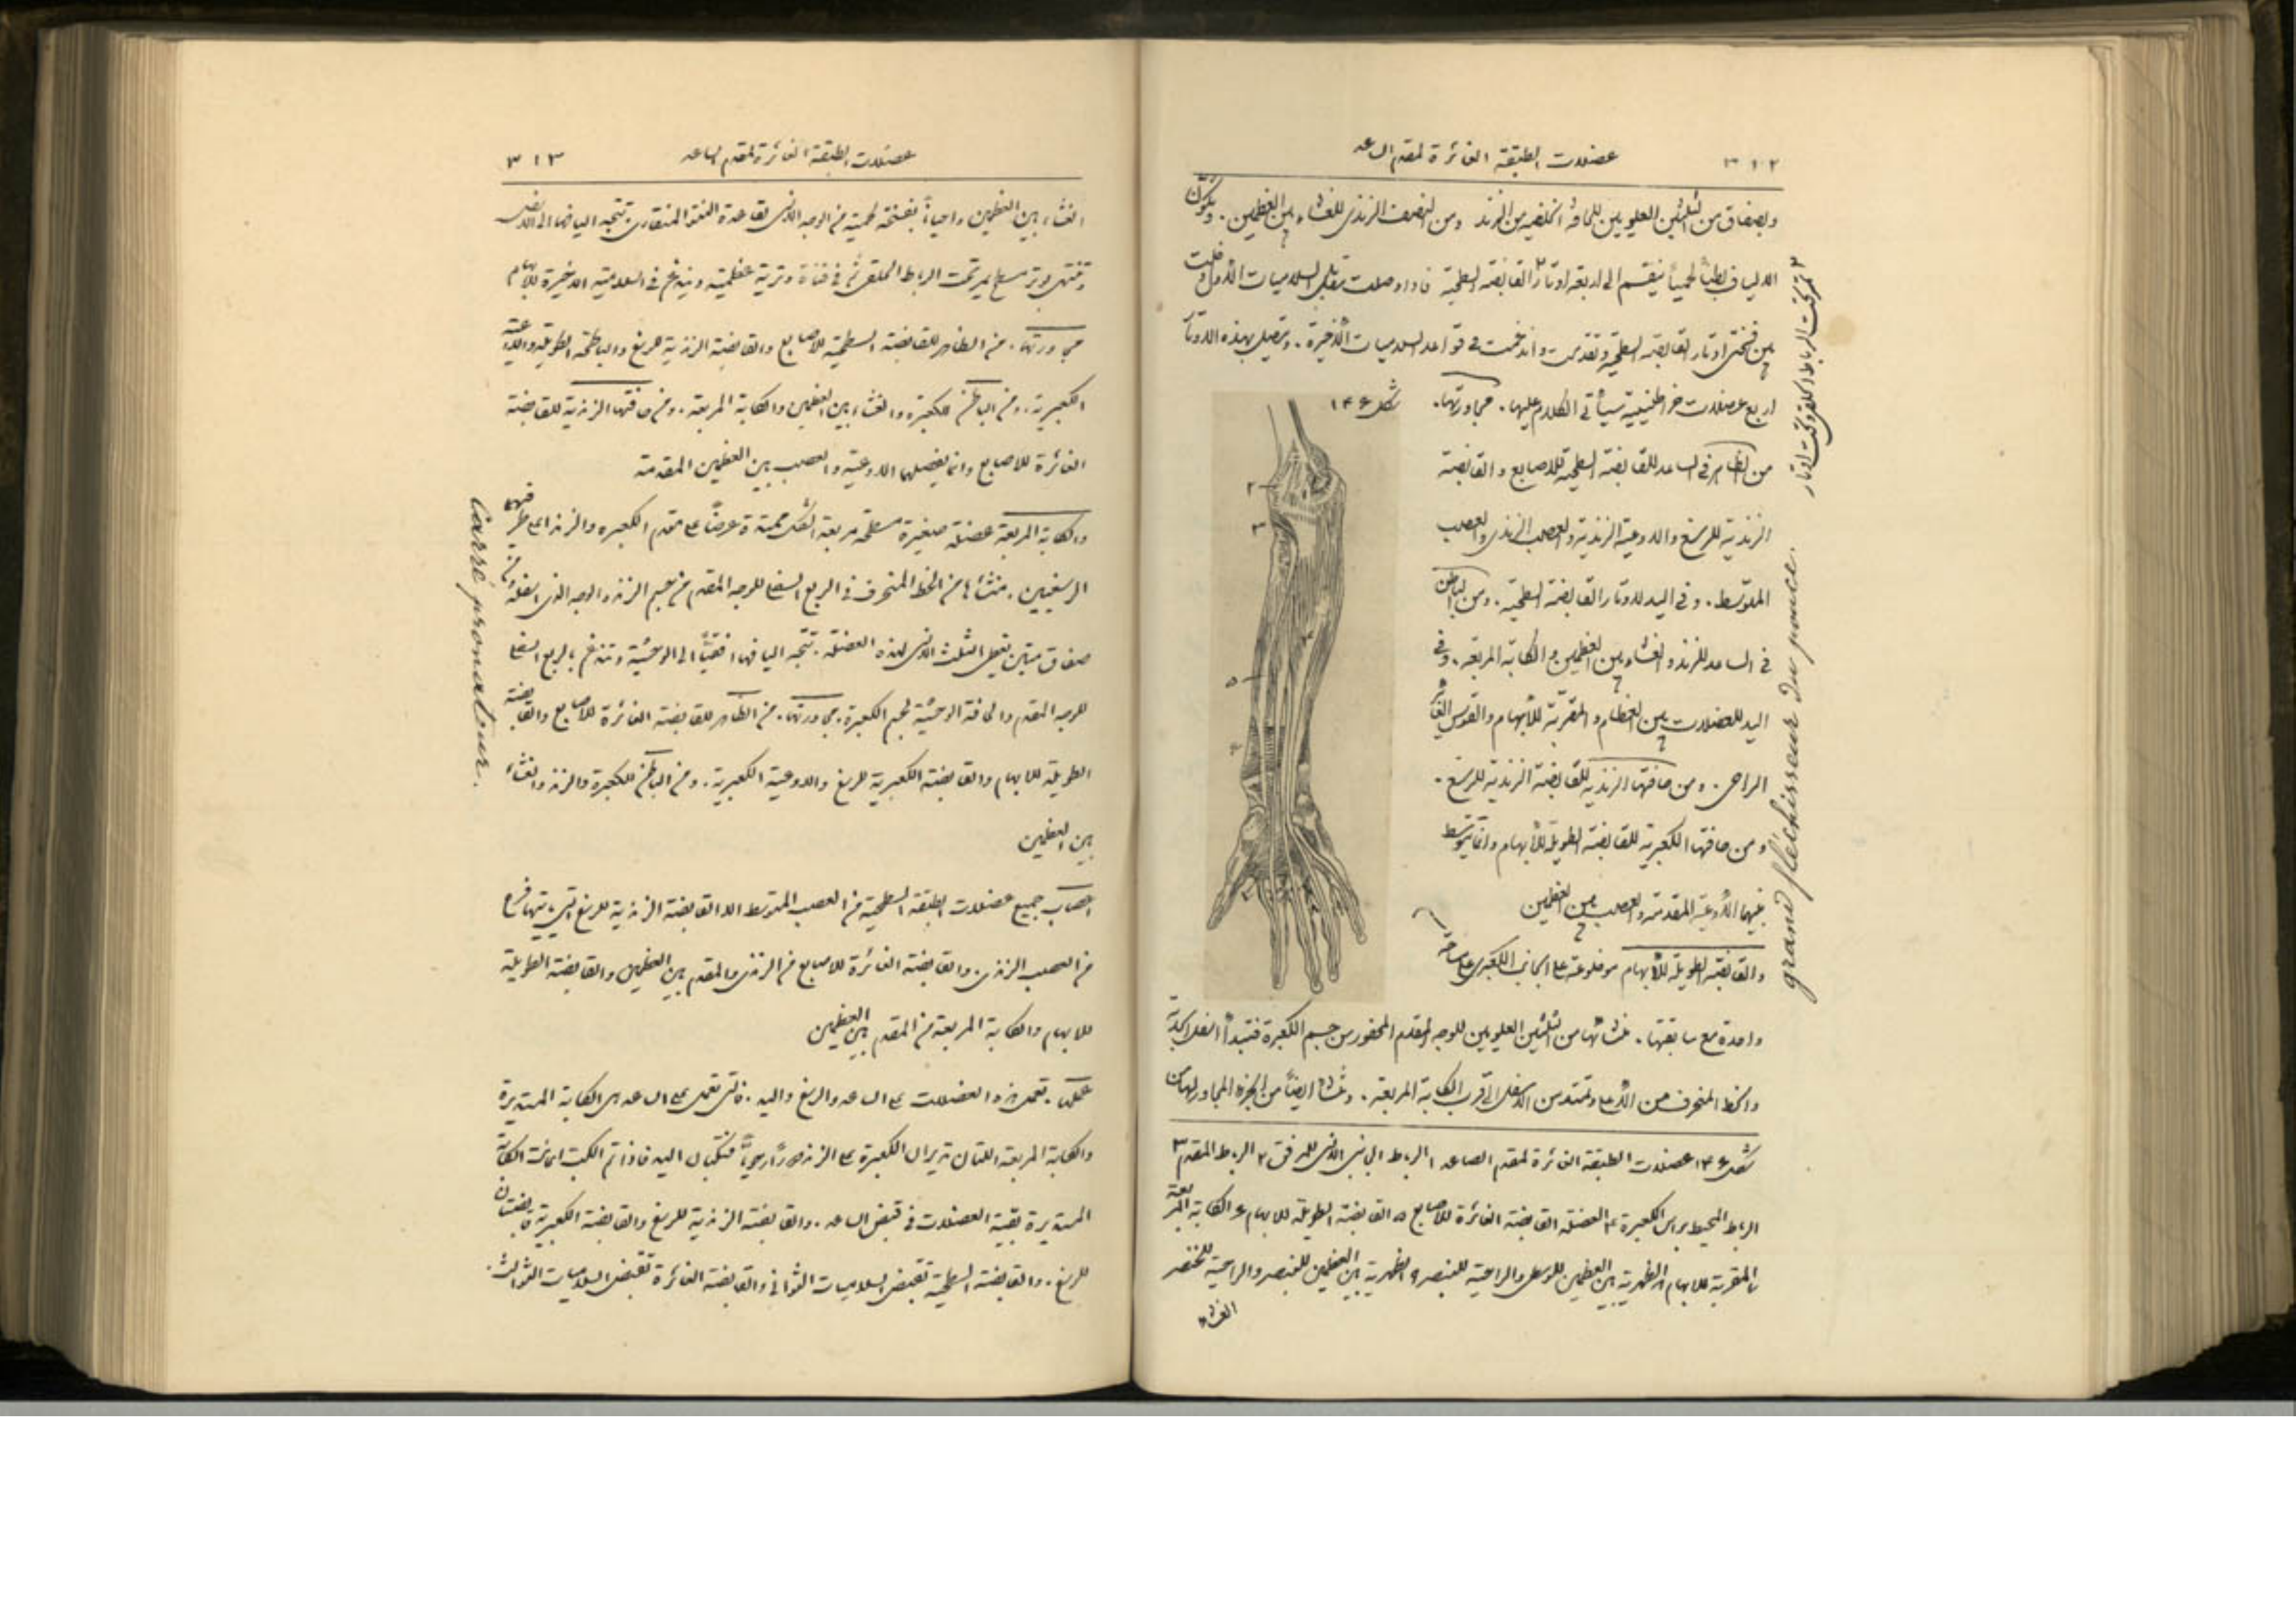 ٣١٢
عضلات الطبقة الغائرة لمقدم الساعد
وبصفاق من الثلثين العلويين للحافة الخلفية من الزند ومن النصف الزندى للغشاء بين العظمين. وتكوّن
الالياف بطناً لحمياً ينقسم الى اربعة اوتار القابضة السطحية فاذا وصلت مقابل السلاميات الأول دخلت
بين فتحتى اوتار القابضة السطحية وتقدمت واندغمت فى قواعد السلاميات الأخيرة. ويتصل بهذه الاوتار
٣ تمر تحت الرباط الحلقى وتحت اوتار
اربع عضلات خراطينية سيأتى الكلام عليها. مجاورتها.
شكل ١٤٦
من الظاهر فى الساعد للقابضة السطحية للاصابع والقابضة
الزندية للرسغ والاوعية الزندية والعصب الزندى والعصب
المتوسط. وفى اليد لاوتار القابضة السطحية. ومن الباطن
فى الساعد للزند والغشاء بين العظمين والكابة المربعة. وفى
اليد للعضلات بين العظام والمقربة للأبهام والقوس الغائر
الراحى. ومن حافتها الزندية للقابضة الزندية للرسغ.
ومن حافتها الكعبرية للقابضة الطويلة للأبهام وانما يتوسط
بينهما الأوعية المقدمة والعصب بين العظمين
والقابضة الطويلة للأبهام موضوعة على الجانب الكعبرى على ساحة
grand fléchisseur du pouce.
واحدة مع سابقتها. منشائها من الثلثين العلويين للوجه المقدم المحفور من جسم الكعبرة فتبتدأ اسفل الحدبة
والخط المنحرف من الأعلى وتمتد من الاسفل الى قرب الكابة المربعة. وتنشاء ايضاً من الجزء المجاور لها من
شكل ١٤٦ عضلات الطبقة الغائرة لمقدم الساعد ١ الرباط الجانبى الانسى للمرفق ٢ الرباط المقدم ٣
الرباط المحيط براس الكعبرة ٤ العضلة القابضة الغائرة للأصابع ٥ القابضة الطويلة للابهام ٦ الكابة المربعة
٧ المقربة للابهام ٨ الظهرية بين العظمين للوسطى والراحية للبنصر ٩ الظهرية بين العظمين للبنصر والراحية للخنصر
الغشاء
٣١٣
عضلات الطبقة الغائرة لمقدم الساعد
الغشاء بين العظمين واحياناً بفتحة لحمية من الوجه الانسى لقاعدة النتؤ المنقارى. تتجه اليافها الى الاسفل
وتنتهى بوتر مسطح يمر تحت الرباط الحلقى ثم فى قناة وترية عظمية ويندغم فى السلامية الاخيرة للابهام
مجاورتها. من الظاهر للقابضة السطحية للأصابع والقابضة الزندية للرسغ والباطحة الطويلة والاوعية
الكعبرية. ومن الباطن للكعبرة والغشاء بين العظمين والكابة المربعة. ومن حافتها الزندية للقابضة
الغائرة للاصابع وانما يفصلها الاوعية والعصب بين العظمين المقدمة
والكابة المربعة عضلة صغيرة مسطحة مربعة الشكل ممتدة عرضاً على مقدم الكعبرة والزند اعلى طرفيهما
الرسغيين. منشائها من الخط المنحرف فى الربع السفلى للوجه المقدم من جسم الزند والوجه الذى اسفله ومن
صفاق متين يغطى الثلث الانسى لهذه العضلة. تتجه اليافها افقياً الى الوحشية وتندغم بالربع السفلى
للوجه المقدم والحافة الوحشية لجسم الكعبرة. مجاورتها. من الظاهر للقابضة الغائرة للأصابع والقابضة
الطويلة للابهام والقابضة الكعبرية للرسغ والاوعية الكعبرية. ومن الباطن للكعبرة والزند والغشاء
بين العظمين
carré pronateur.
اعصاب جميع عضلات الطبقة السطحية من العصب المتوسط الا القابضة الزندية للرسغ التى ياتيها فرع
من العصب الزندى. والقابضة الغائرة للاصابع من الزندى والمقدم بين العظمين والقابضة الطويلة
للابهام والكابة المربعة من المقدم بين العظمين
عملها. تعمل هذه العضلات على الساعد والرسغ واليد. فالتى تعمل على الساعد هى الكابة المستديرة
والكابة المربعة اللتان تديران الكعبرة على الزند دوراً رحوياً فتكبان اليد فاذا تم الكب اعانت الكابة
المستديرة بقية العضلات فى قبض الساعد. والقابضة الزندية للرسغ والقابضة الكعبرية قابضتان
للرسغ. والقابضة السطحية تقبض السلاميات الثوانى والقابضة الغائرة تقبض السلاميات الثوالث.